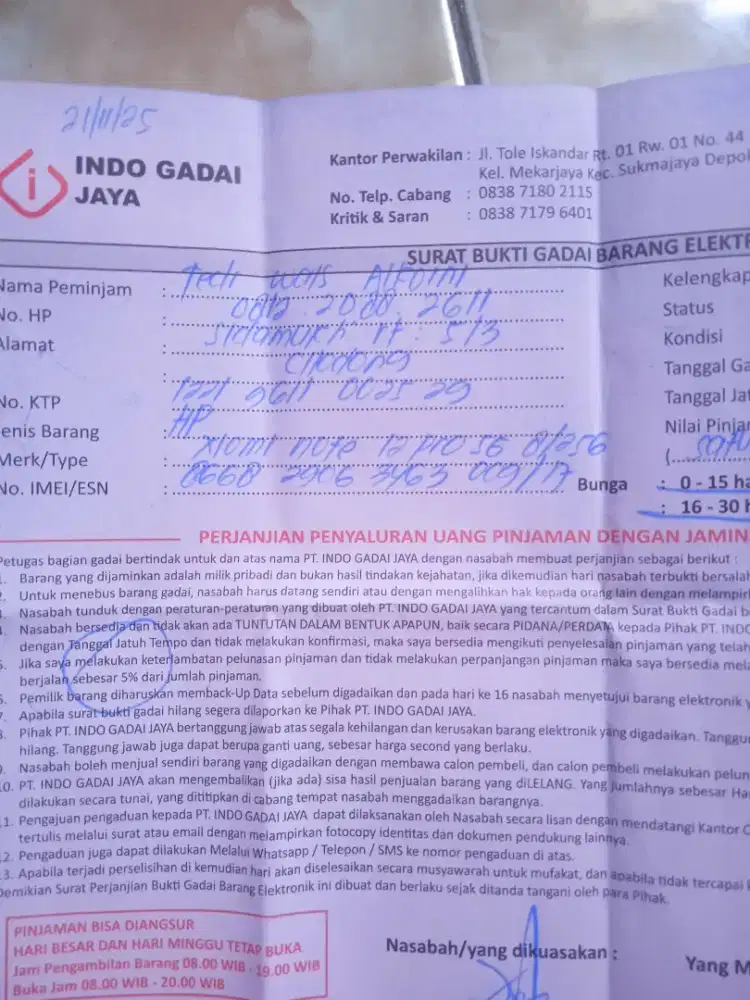 21/11/25
INDO GADAI
JAYA
Kantor Perwakilan : Jl. Tole Iskandar Rt. 01 Rw. 01 No. 44
Kel. Mekarjaya Kec. Sukmajaya Depok
No. Telp. Cabang : 0838 7180 2115
Kritik & Saran : 0838 7179 6401
SURAT BUKTI GADAI BARANG ELEKTR
Nama Peminjam :
No. HP : 0812 2088 2611
Alamat : rt : 5/3
No. KTP :
Jenis Barang : HP
Merk/Type : Xiomi note 12 pro 5G 8/256
No. IMEI/ESN :
Kelengkap
Status
Kondisi
Tanggal Ga
Tanggal Jat
Nilai Pinjam
(
Bunga : 0 - 15 ha
: 16 - 30 h
PERJANJIAN PENYALURAN UANG PINJAMAN DENGAN JAMIN
Petugas bagian gadai bertindak untuk dan atas nama PT. INDO GADAI JAYA dengan nasabah membuat perjanjian sebagai berikut :
1. Barang yang dijaminkan adalah milik pribadi dan bukan hasil tindakan kejahatan, jika dikemudian hari nasabah terbukti bersalah
2. Untuk menebus barang gadai, nasabah harus datang sendiri atau dengan mengalihkan hak kepada orang lain dengan melampirk
3. Nasabah tunduk dengan peraturan-peraturan yang dibuat oleh PT. INDO GADAI JAYA yang tercantum dalam Surat Bukti Gadai b
4. Nasabah bersedia dan tidak akan ada TUNTUTAN DALAM BENTUK APAPUN, baik secara PIDANA/PERDATA kepada Pihak PT. INDO
dengan Tanggal Jatuh Tempo dan tidak melakukan konfirmasi, maka saya bersedia mengikuti penyelesaian pinjaman yang telah
5. Jika saya melakukan keterlambatan pelunasan pinjaman dan tidak melakukan perpanjangan pinjaman maka saya bersedia mela
berjalan sebesar 5% dari jumlah pinjaman.
6. Pemilik barang diharuskan memback-Up Data sebelum digadaikan dan pada hari ke 16 nasabah menyetujui barang elektronik y
7. Apabila surat bukti gadai hilang segera dilaporkan ke Pihak PT. INDO GADAI JAYA.
8. Pihak PT. INDO GADAI JAYA bertanggung jawab atas segala kehilangan dan kerusakan barang elektronik yang digadaikan. Tanggun
hilang. Tanggung jawab juga dapat berupa ganti uang, sebesar harga second yang berlaku.
9. Nasabah boleh menjual sendiri barang yang digadaikan dengan membawa calon pembeli, dan calon pembeli melakukan pelun
10. PT. INDO GADAI JAYA akan mengembalikan (jika ada) sisa hasil penjualan barang yang diLELANG. Yang jumlahnya sebesar Ha
dilakukan secara tunai, yang dititipkan di cabang tempat nasabah menggadaikan barangnya.
11. Pengajuan pengaduan kepada PT. INDO GADAI JAYA dapat dilaksanakan oleh Nasabah secara lisan dengan mendatangi Kantor C
tertulis melalui surat atau email dengan melampirkan fotocopy identitas dan dokumen pendukung lainnya.
12. Pengaduan juga dapat dilakukan Melalui Whatsapp / Telepon / SMS ke nomor pengaduan di atas.
13. Apabila terjadi perselisihan di kemudian hari akan diselesaikan secara musyawarah untuk mufakat, dan apabila tidak tercapai
Demikian Surat Perjanjian Bukti Gadai Barang Elektronik ini dibuat dan berlaku sejak ditanda tangani oleh para Pihak.
PINJAMAN BISA DIANGSUR
HARI BESAR DAN HARI MINGGU TETAP BUKA
Jam Pengambilan Barang 08.00 WIB - 19.00 WIB
Buka Jam 08.00 WIB - 20.00 WIB
Nasabah/yang dikuasakan :
Yang M